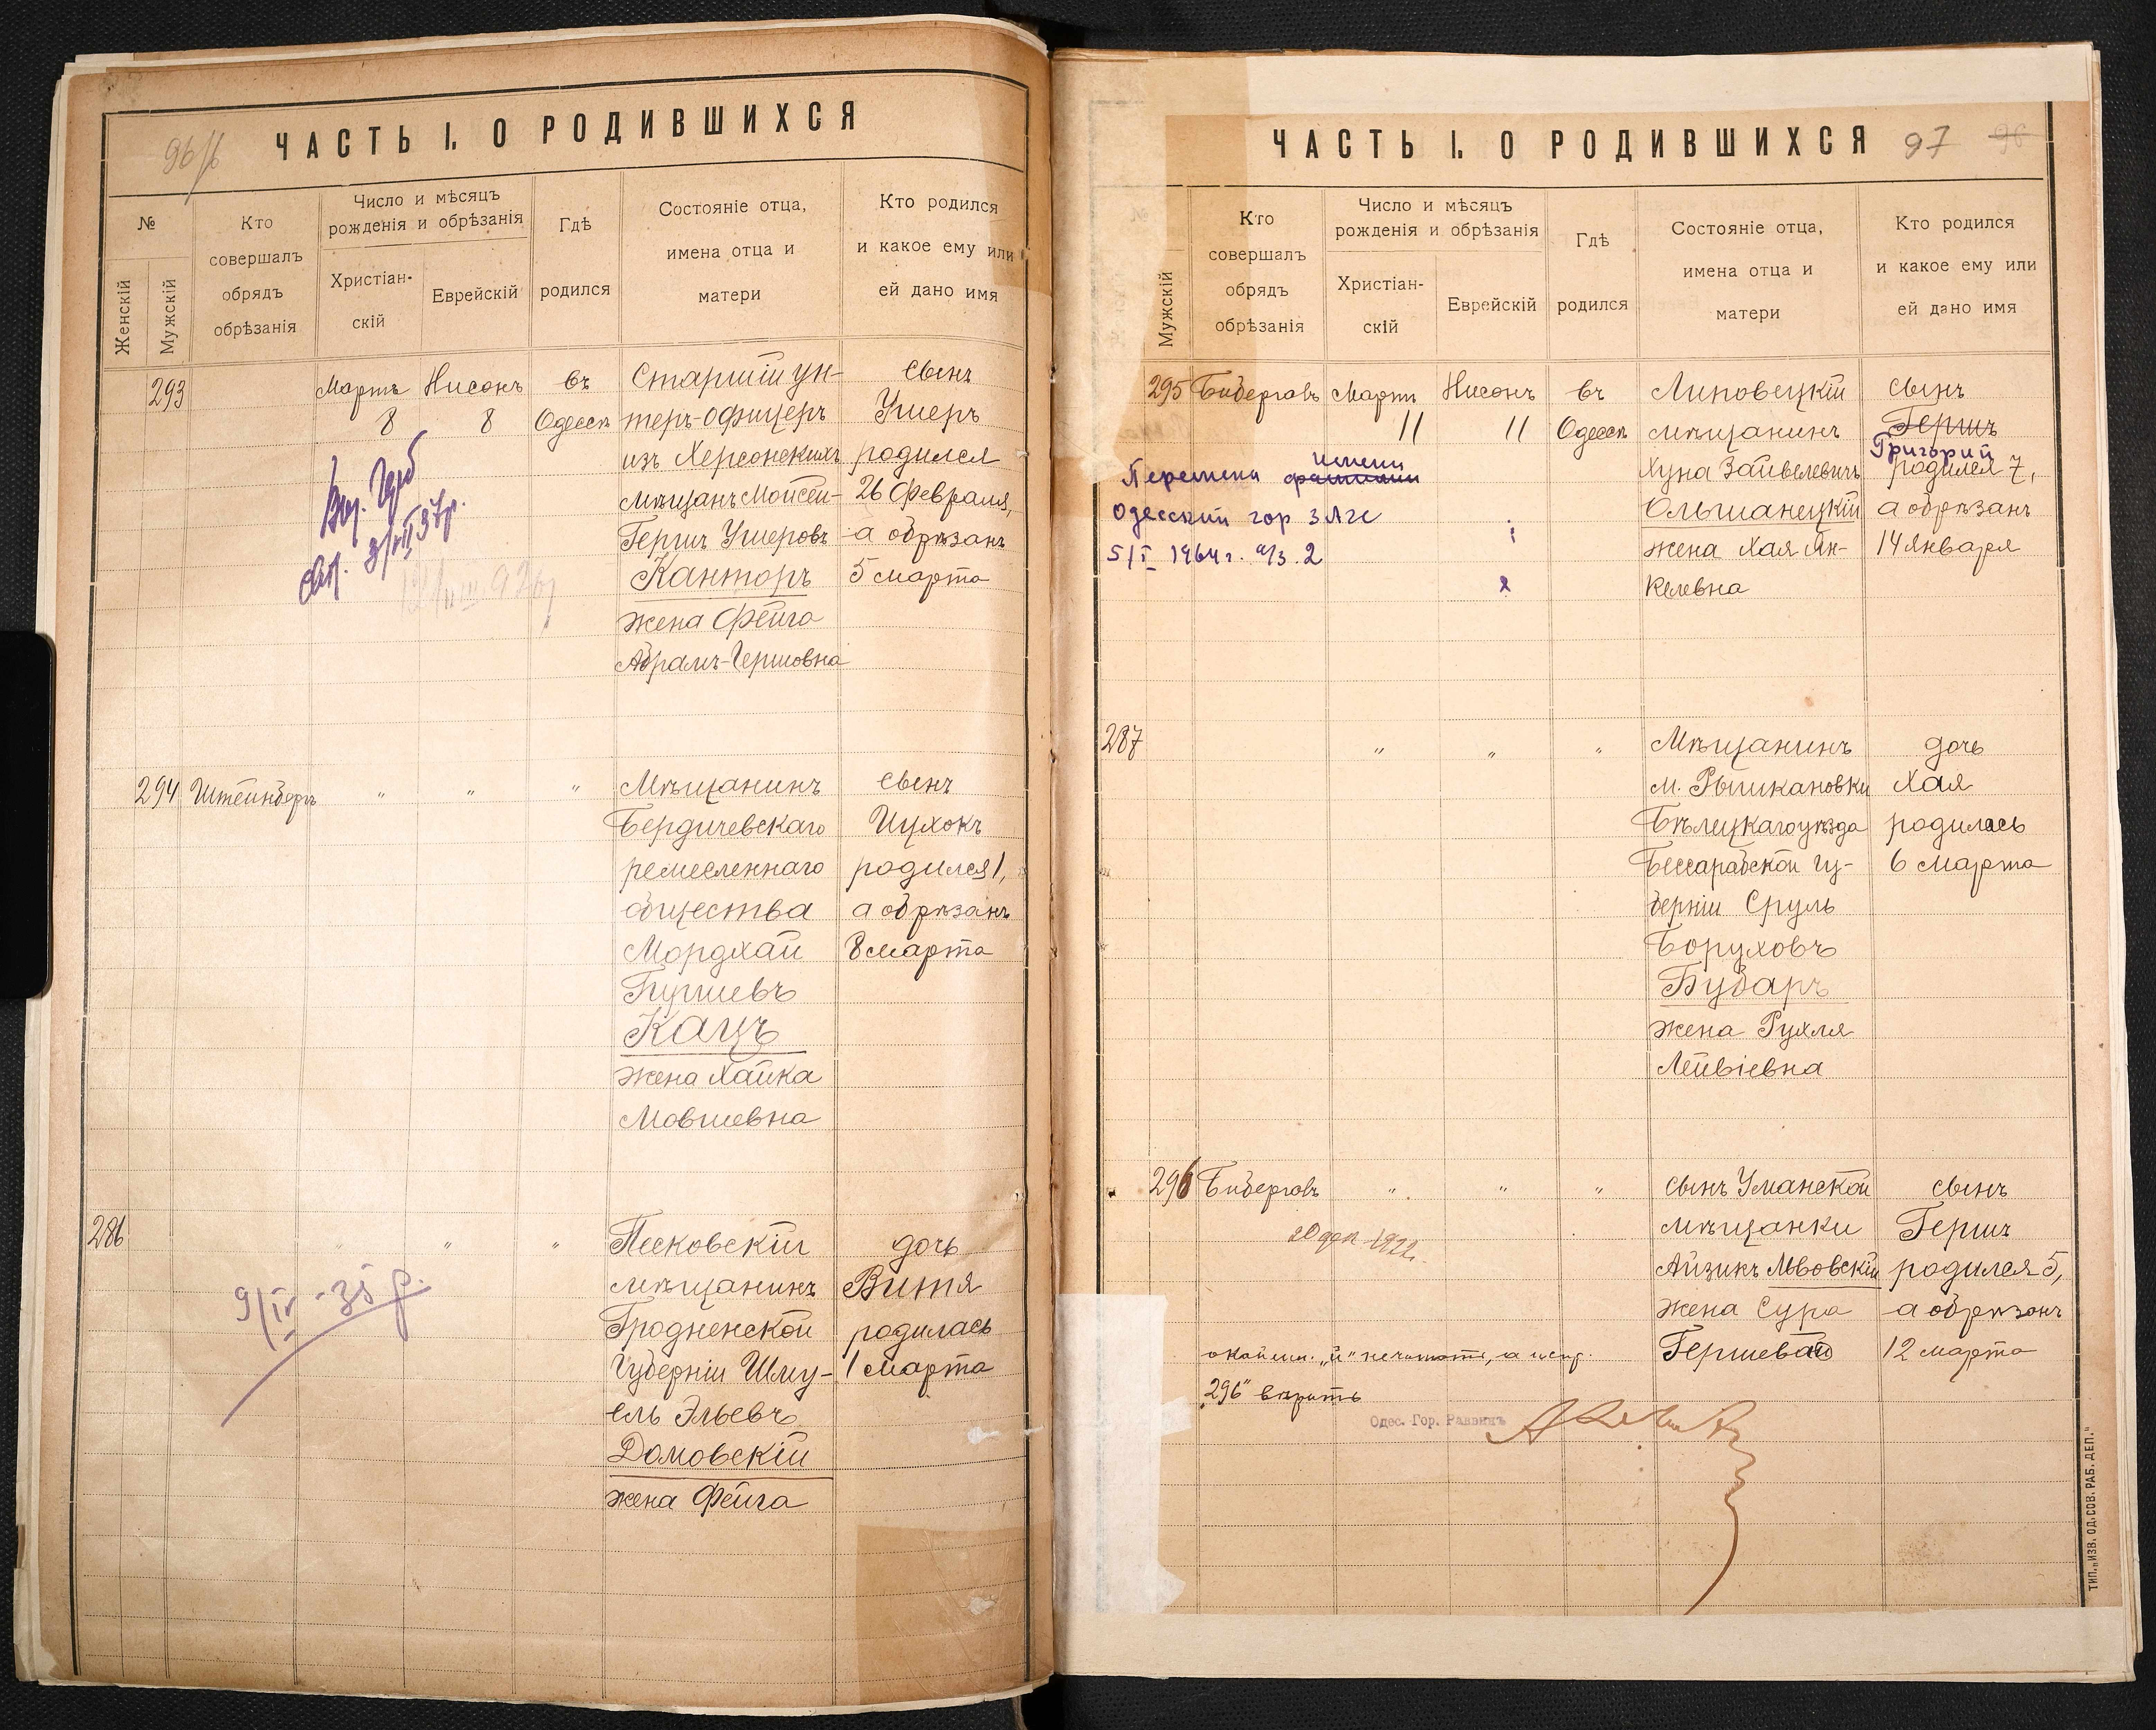 96
ЧАСТЬ I. О РОДИВШИХСЯ
№
Женскій
Мужскій
Кто
совершалъ
обрядъ
обрѣзанія
Число и мѣсяцъ
рожденія и обрѣзанія
Христіан-
скій
Еврейскій
Гдѣ
родился
Состояніе отца,
имена отца и
матери
Кто родился
и какое ему или
ей дано имя
293
Мартъ
8
Нисонъ
8
въ
Одессѣ
Старшій ун-
теръ-офицеръ
изъ Херсонскихъ
мѣщанъ Мойсей-
Гершъ Ушеровъ
Канторъ
жена Фейга
Абрамъ-Гершовна
сынъ
Ушеръ
родился
26 Февраля,
а обрѣзанъ
5 марта
294
Штейнбергъ
"
"
"
Мѣщанинъ
Бердичевскаго
ремесленнаго
общества
Мордхай
Кацъ
жена Хайка
Мовшевна
сынъ
Ицхокъ
родился 1,
а обрѣзанъ
8 марта
286
"
"
"
9/IV-35 р.
Песковскій
мѣщанинъ
Гродненской
Губерніи Шму-
ель Эльевъ
Домовскій
жена Фейга
дочь
Витя
родилась
1 марта
ЧАСТЬ I. О РОДИВШИХСЯ
97
96
Мужскій
Кто
совершалъ
обрядъ
обрѣзанія
Число и мѣсяцъ
рожденія и обрѣзанія
Христіан-
скій
Еврейскій
Гдѣ
родился
Состояніе отца,
имена отца и
матери
Кто родился
и какое ему или
ей дано имя
295
Биберговъ
Мартъ
11
Нисонъ
11
въ
Одессѣ
Перемена фамилии имени
Одесский гор ЗАГС
5/I 1964 г. а/з. 2
Липовецкій
мѣщанинъ
Хуна Зайвелевичъ
Ольшанецкій
жена Хая Ян-
келевна
сынъ
Гершъ
Григорий
родился 7,
а обрѣзанъ
14 Января
287
"
"
"
Мѣщанинъ
м. Рышкановки
Бѣлецкаго уѣзда
Бессарабской гу-
берніи Сруль
Боруховъ
Бубаръ
жена Рухля
Лейвіевна
дочь
Хая
родилась
6 марта
296
Биберговъ
"
"
"
20 дек 1922.
сынъ Уманской
мѣщанки
Айзикъ Львовскій
жена Сура
Гершевай
сынъ
Гершъ
родился 5,
а обрѣзанъ
12 марта
"й" не читать, а испр.
296" вѣрить
Одес. Гор. Раввинъ
ТИП. „ИЗВ. ОД. СОВ. РАБ. ДЕП."